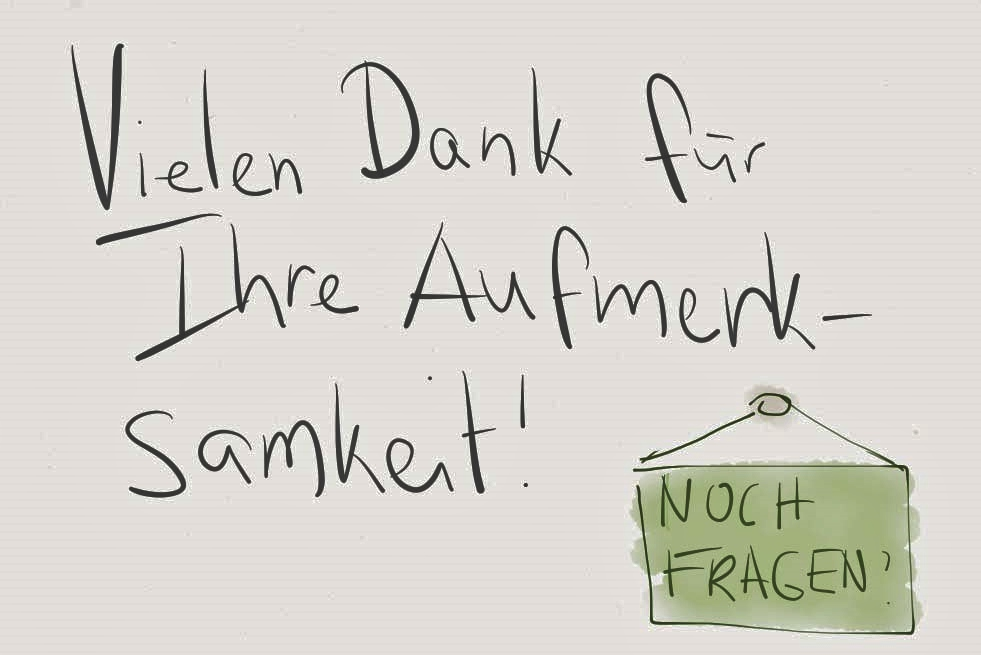 Vielen Dank für
Ihre Aufmerk-
samkeit!
NOCH
FRAGEN?